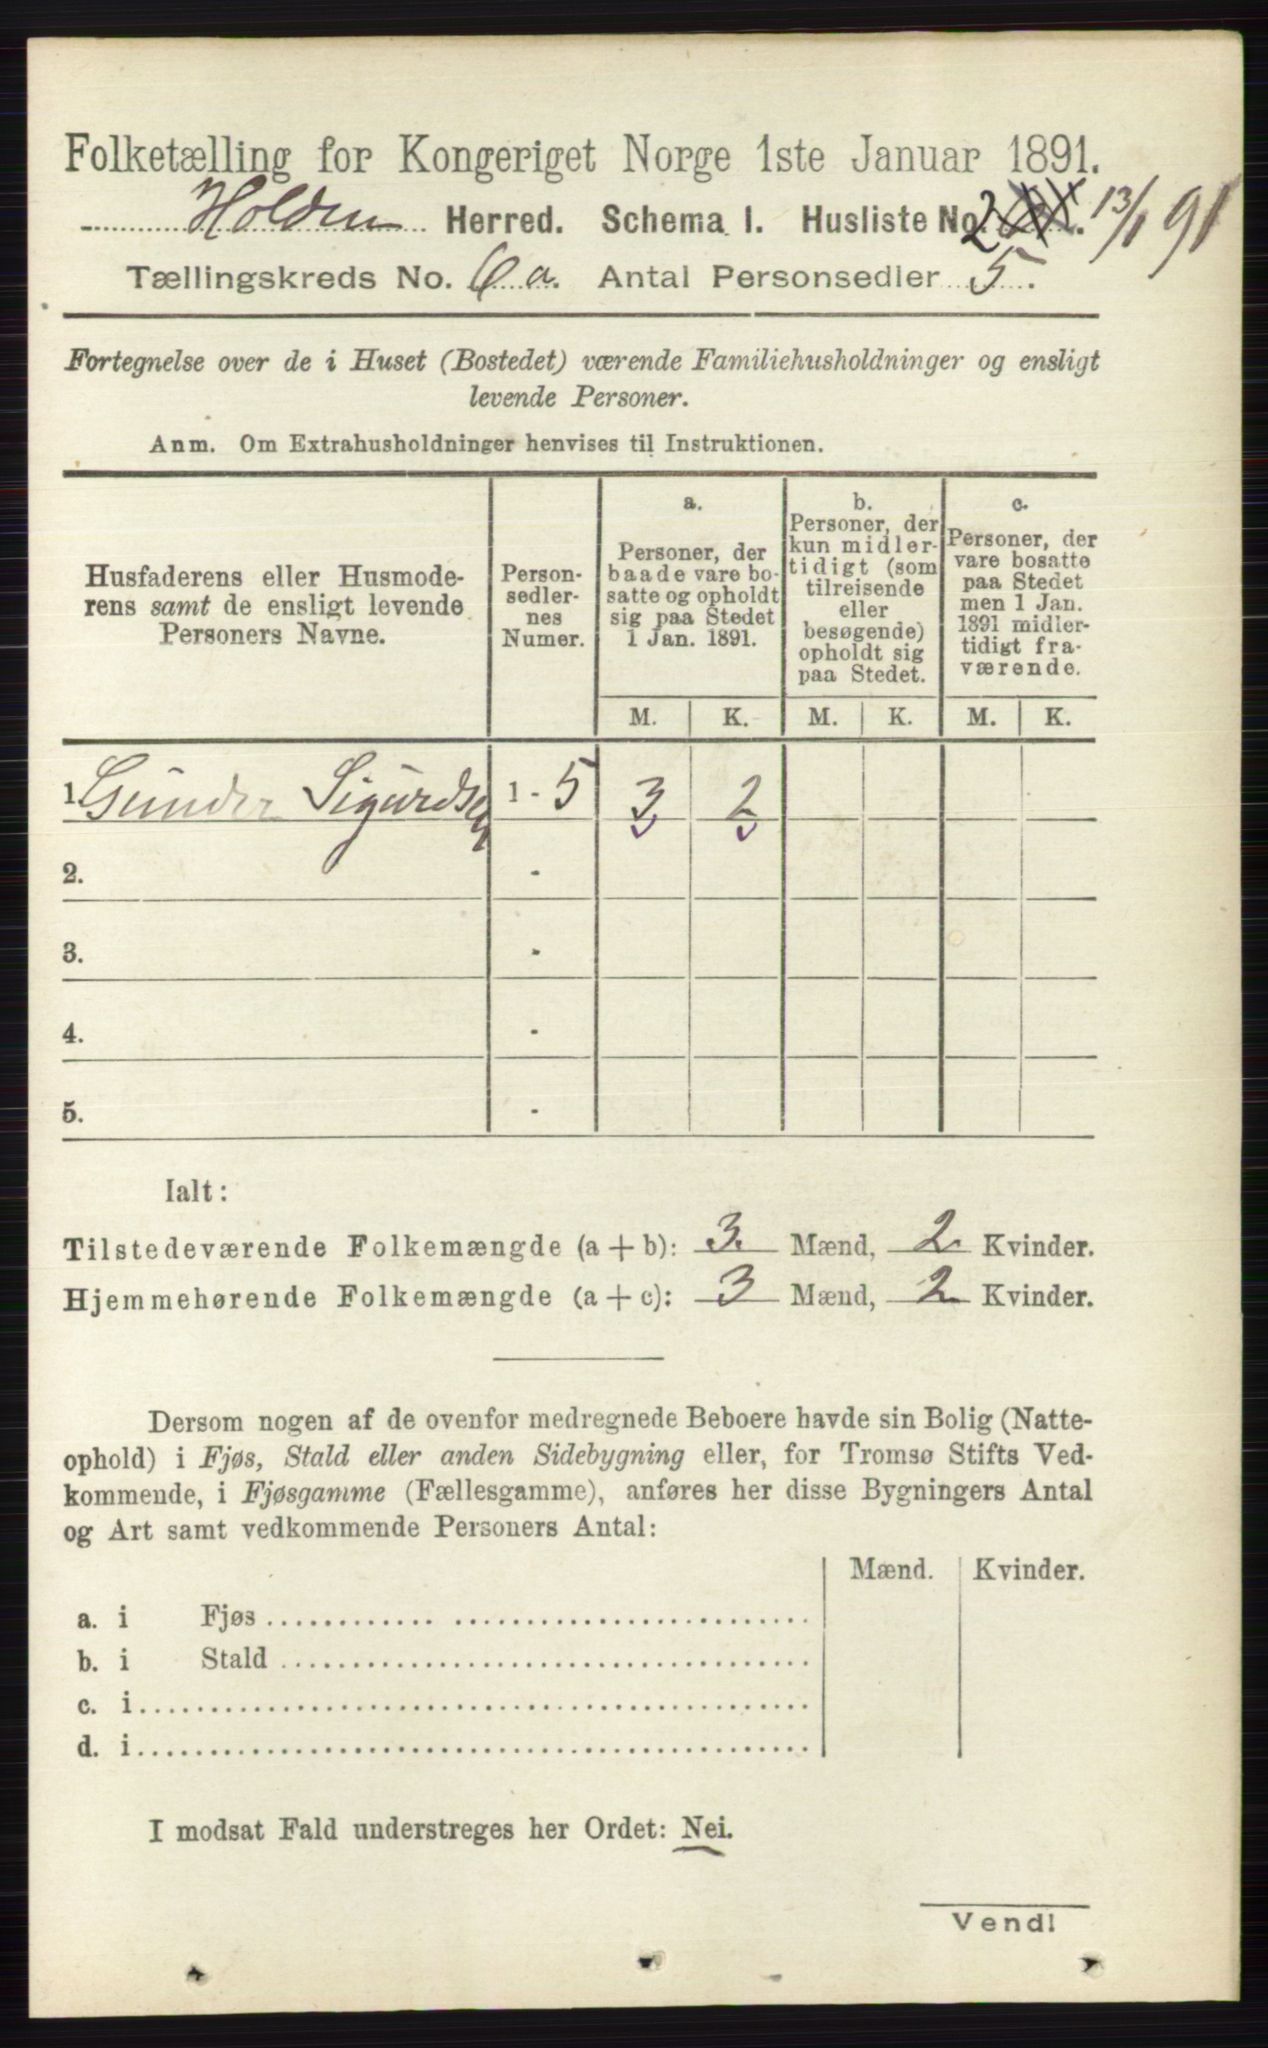 Folketælling for Kongeriget Norge 1ste Januar 1891.
Holden Herred. Schema I. Husliste No. 2 13/1 91
Tællingskreds No. 6 a. Antal Personsedler 5.
Fortegnelse over de i Huset (Bostedet) værende Familiehusholdninger og ensligt
levende Personer.
Anm. Om Extrahusholdninger henvises til Instruktionen.
Husfaderens eller Husmode-
rens samt de ensligt levende
Personers Navne.
Person-
sedler-
nes
Numer.
a.
Personer, der
baade vare bo-
satte og opholdt
sig paa Stedet
1 Jan. 1891.
b.
Personer, der
kun midler-
tidigt (som
tilreisende
eller
besøgende)
opholdt sig
paa Stedet.
c.
Personer, der
vare bosatte
paa Stedet
men 1 Jan.
1891 midler-
tidigt fra-
værende.
M. K. M. K. M. K.
1. Gunder Sigurdsen 1 - 5 3 2
2. -
3. -
4. -
5. -
Ialt:
Tilstedeværende Folkemængde (a + b): 3. Mænd, 2. Kvinder.
Hjemmehørende Folkemængde (a + c): 3 Mænd, 2 Kvinder.
Dersom nogen af de ovenfor medregnede Beboere havde sin Bolig (Natte-
ophold) i Fjøs, Stald eller anden Sidebygning eller, for Tromsø Stifts Ved-
kommende, i Fjøsgamme (Fællesgamme), anføres her disse Bygningers Antal
og Art samt vedkommende Personers Antal:
Mænd. Kvinder.
a. i Fjøs
b. i Stald
c. i
d. i
I modsat Fald understreges her Ordet: Nei.
Vend!